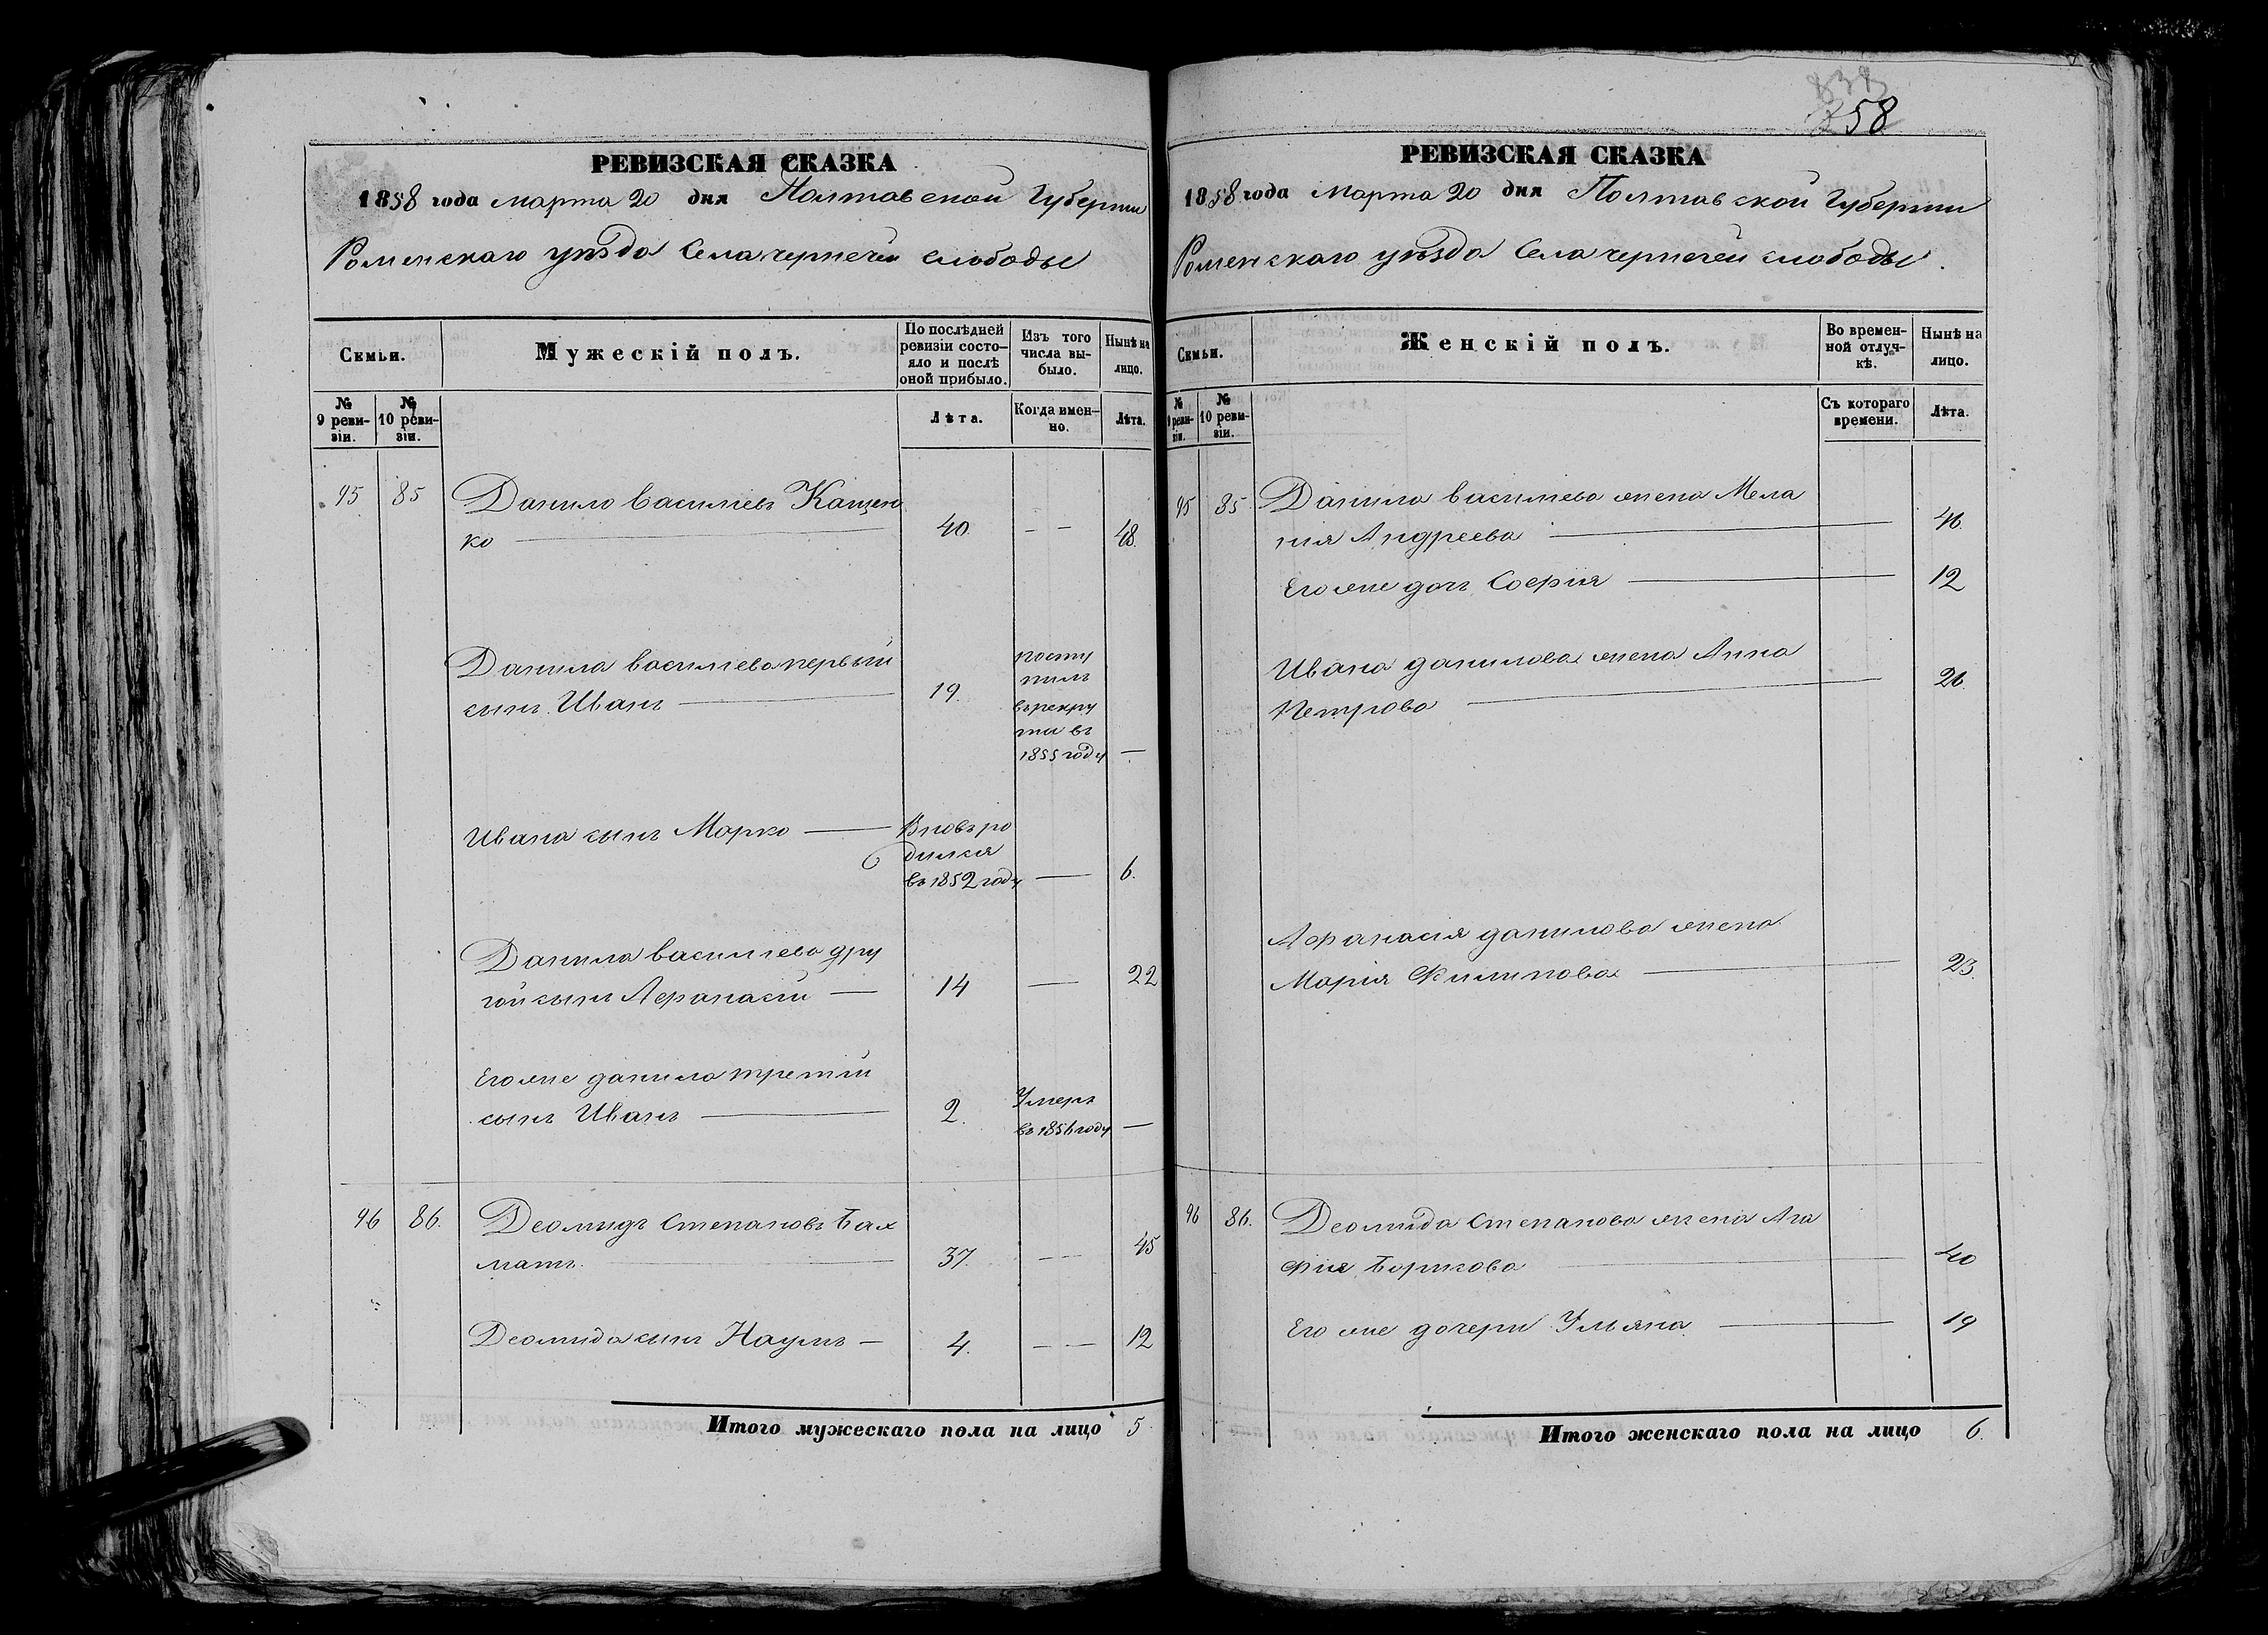 РЕВИЗСКАЯ СКАЗКА
1858 года марта 20 дня Полтавской Губернии
Роменскаго уѣзда Села чернечей слободы
Семьи.
Мужескій полъ.
По послѣдней ревизіи состояло и послѣ оной прибыло.
Изъ того числа выбыло.
Нынѣ на лицо.
№ 9 ревизіи.
№ 10 ревизіи.
Лѣта.
Когда именно.
Лѣта.
95 85 Данило Василіевъ Кащен
ко — 40. — — 48.
Данила василіева первый
сынъ Иванъ — 19.
посту
пилъ
въ рекру
ти въ
1855 году —
Ивана сынъ Марко —
Вновь ро
дился
въ 1852 году — 6.
Данила василіева дру
гой сынъ Афанасій — 14 — 22
Его же данила третій
сынъ Иванъ — 2.
Умеръ
въ 1856 году —
96 86. Деомидъ Степановъ Бах
матъ. — 37. — — 45
Деомида сынъ Наумъ — 4. — — 12
Итого мужескаго пола на лицо 5
838
258
РЕВИЗСКАЯ СКАЗКА
1858 года Марта 20 дня Полтавской Губернии
Роменскаго уѣзда Села чернечей слободы.
Семьи.
Женскій полъ.
Во временной отлучкѣ.
Нынѣ на лицо.
№ 9 ревизіи.
№ 10 ревизіи.
Съ котораго времени.
Лѣта.
95 85. Данила василіева жена Мела
нія Андреева — 46.
Его же дочь Софія — 12
Ивана данилова жена Анна
Петрова — 26.
Афанасія данилова жена
Марія Филипова — 23.
96 86. Деомида Степанова жена Ага
фия Борисова — 40
Его же дочери Ульяна — 19
Итого женскаго пола на лицо 6.